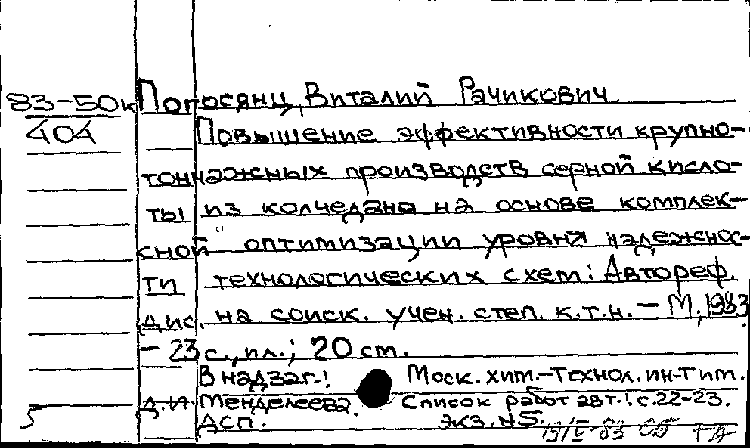 83-50к Погосянц, Виталий Рачикович
404 Повышение эффективности крупно-
тоннажных производств серной кисло-
ты из колчедана на основе комплек-
сной оптимизации уровня надежнос-
ти технологических схем: Автореф.
дис. на соиск. учен. степ. к.т.н. - М., 1983
- 23 с., ил.; 20 см.
В надзаг.: Моск. хим.-технол. ин-т им.
Д.И. Менделеева. Список работ авт.: с.22-23.
ДСП. экз. №5.